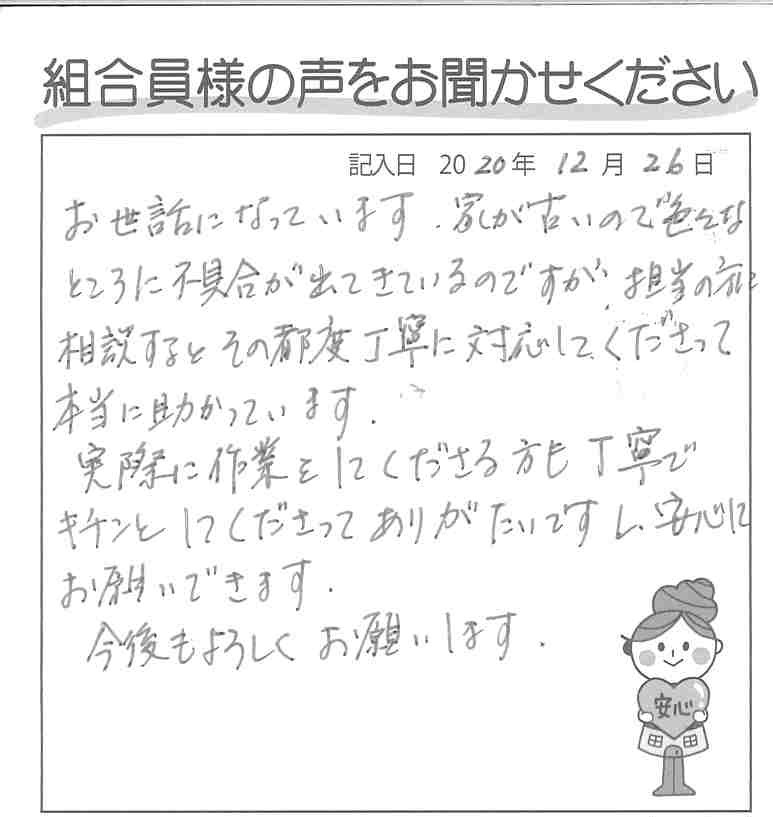 組合員様の声をお聞かせください
記入日 2020年 12月 26日
お世話になっています. 家が古いので色々な
ところに不具合が出てきているのですが、担当の方に
相談するとその都度丁寧に対応してくださって
本当に助かっています.
実際に作業をしてくださる方も丁寧で
キチンとしてくださってありがたいですし、安心に
お願いできます.
今後もよろしくお願いします.
安心